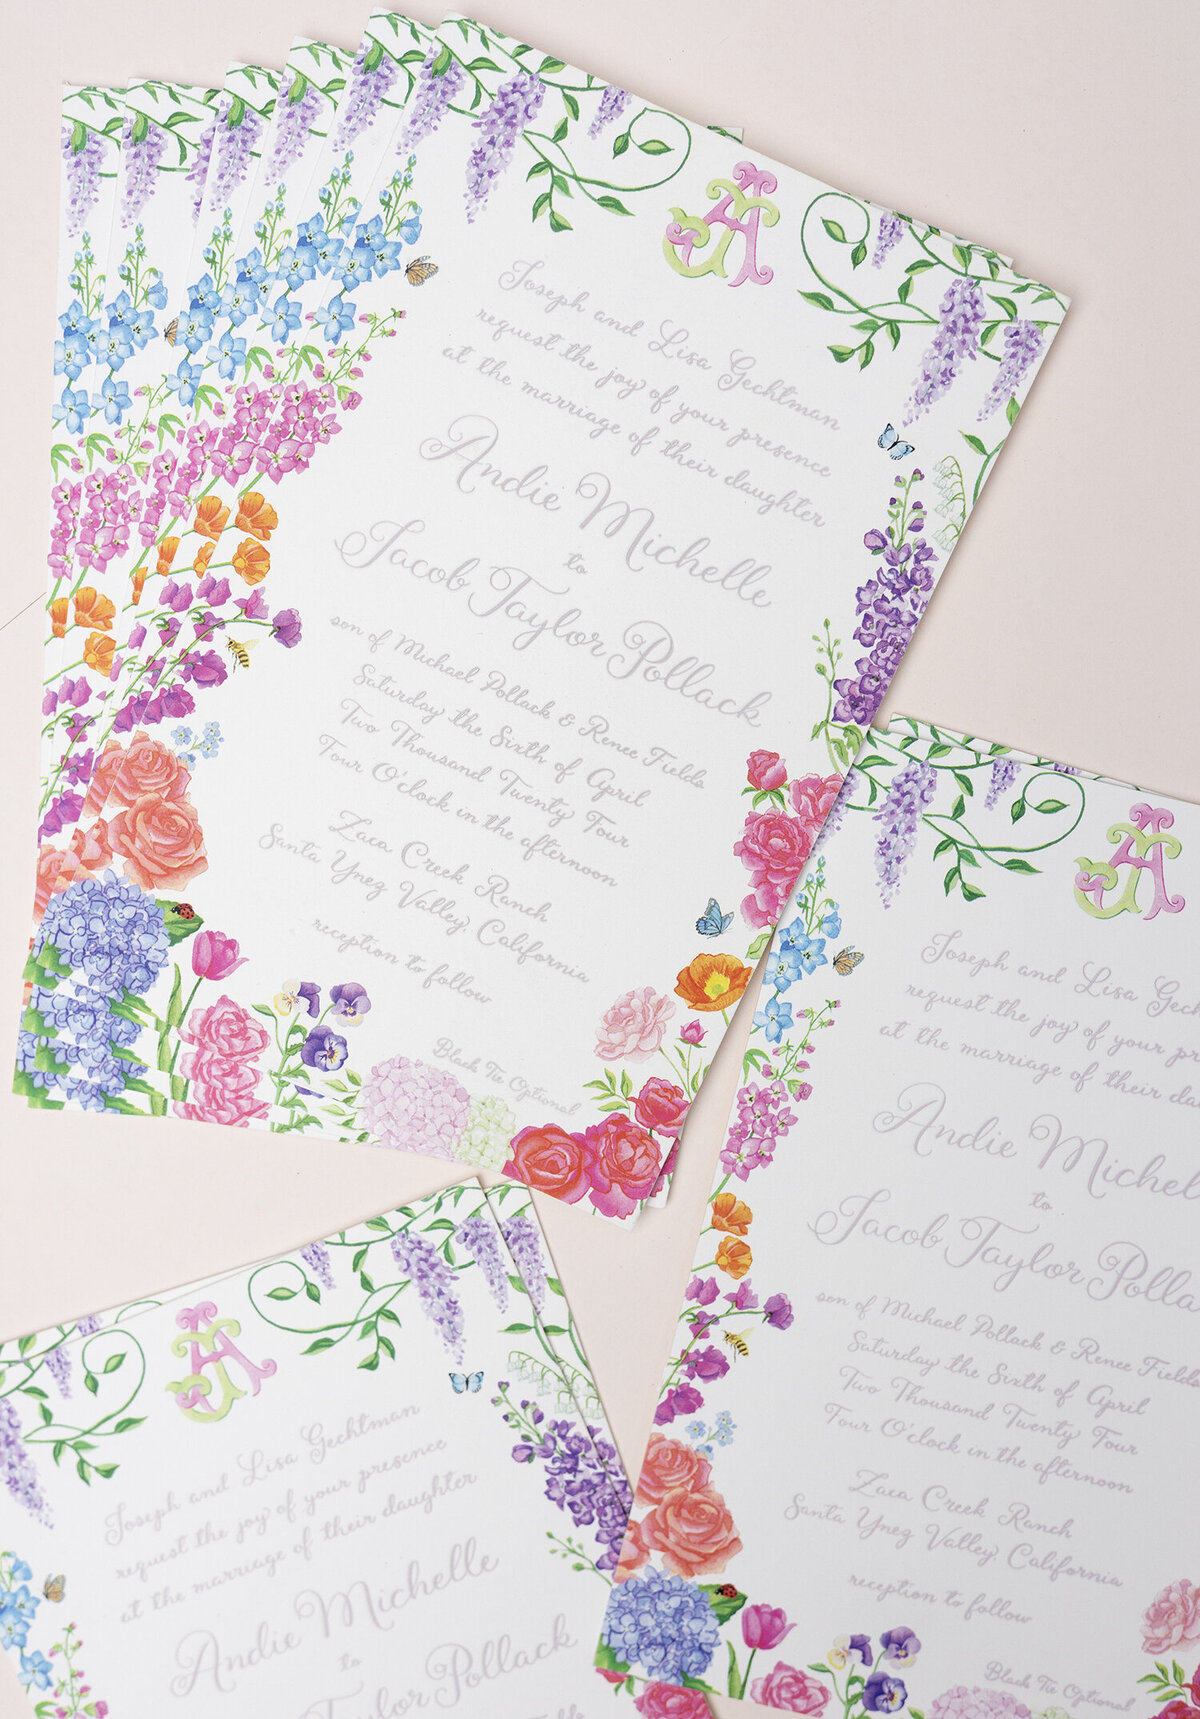 AJ
Joseph and Lisa Gechtman
request the joy of your presence
at the marriage of their daughter
Andie Michelle
to
Jacob Taylor Pollack
son of Michael Pollack & Renee Fields
Saturday the Sixth of April
Two Thousand Twenty Four
Four O'clock in the afternoon
Zaca Creek Ranch
Santa Ynez Valley, California
reception to follow
Black Tie Optional
AJ
Joseph and Lisa Gech
request the joy of your pr
at the marriage of their da
Andie Michel
to
Jacob Taylor Polla
son of Michael Pollack & Renee Fields
Saturday the Sixth of April
Two Thousand Twenty Four
Four O'clock in the afternoon
Zaca Creek Ranch
Santa Ynez Valley, California
reception to follow
Black Tie Optional
AJ
Joseph and Lisa Gechtman
request the joy of your presence
at the marriage of their daughter
Andie Michelle
to
Taylor Pollack